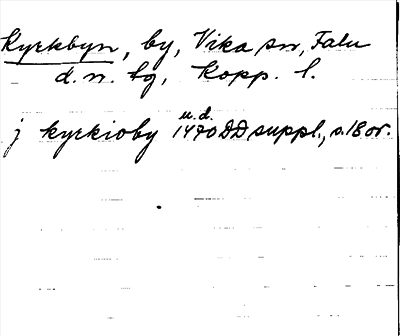 Kyrkbyn, by, Vika sn, Falu
d.n. tg, Kopp. l.
u.d.
j kyrkioby 1470 DD suppl., s. 18 or.